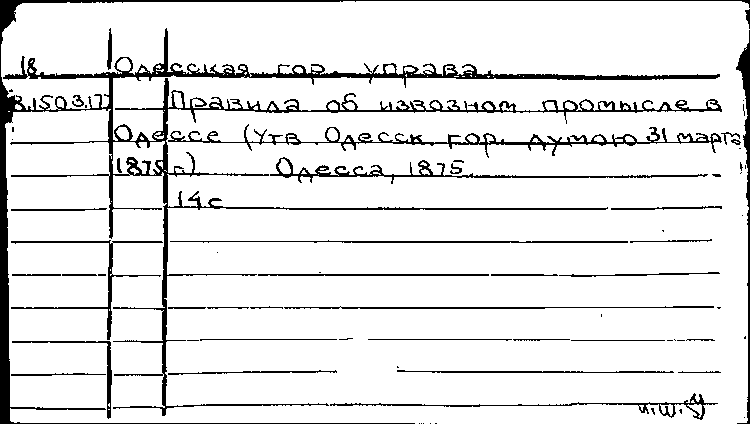 18. Одесская гор. управа.
8.1503.17 Правила об извозном промысле в
Одессе (Утв. Одесск. гор. думою 31 марта
1875 г.) Одесса, 1875.
14 с